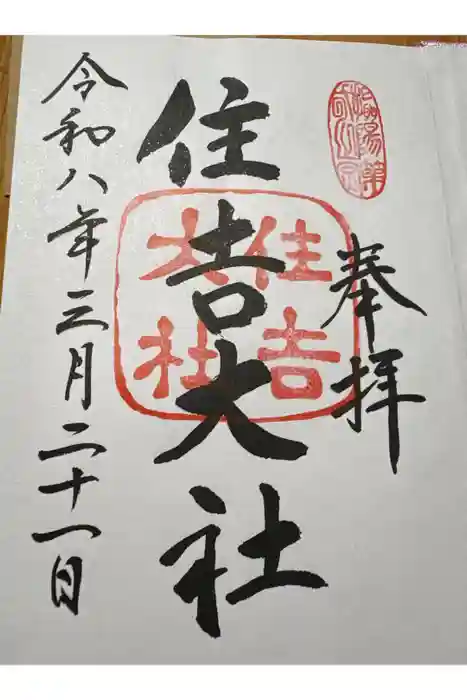 奉拝
住吉大社
住吉大社
令和八年三月二十一日